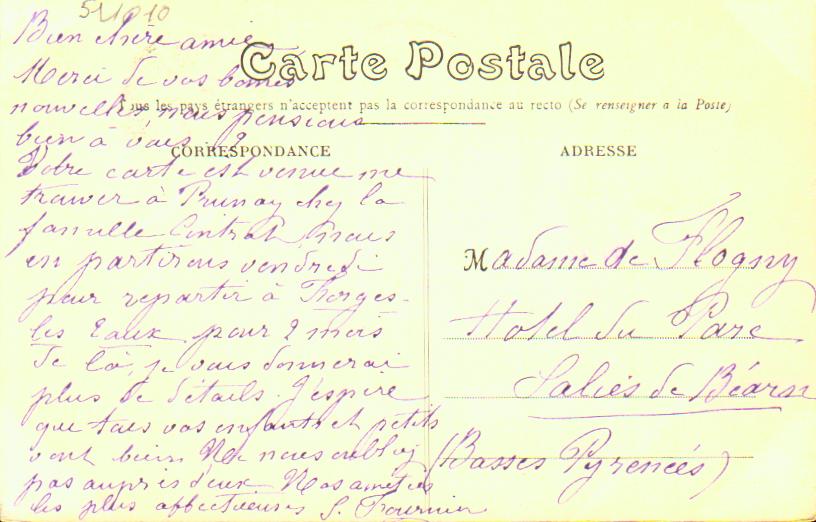 5/10/10
Bien chère amie
Merci de vos bonnes
nouvelles, nous pensions
bien à vous
Votre carte est venue me
trouver à Prunay chez la
famille Contrat, nous
en partirons vendredi
pour repartir à Forges-
les Eaux pour 2 mois
de là, je vous donnerai
plus de détails. J'espère
que tous vos enfants et petits
vont bien Ne nous oubliez
pas auprès d'eux Nos amitiés
les plus affectueuses S. Fournier
Carte Postale
Tous les pays étrangers n'acceptent pas la correspondance au recto (Se renseigner a la Poste)
CORRESPONDANCE
ADRESSE
Madame de Flogny
Hotel du Parc
Salies de Béarn
(Basses Pyrenées)